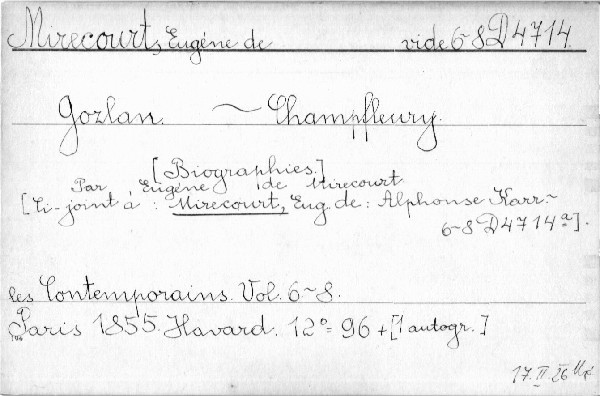 Mirecourt, Eugéne de vide 6-8 D 4714
Gozlan. ~ Champfleury.
[Biographies.]
Par Eugéne de Mirecourt
[Ci-joint à : Mirecourt, Eug. de : Alphonse Karr ~
6-8 D 4714 a].
les Contemporains. Vol. 6-8.
Paris 1855. Havard. 12° = 96 + [1 autogr.]
17. II. 26